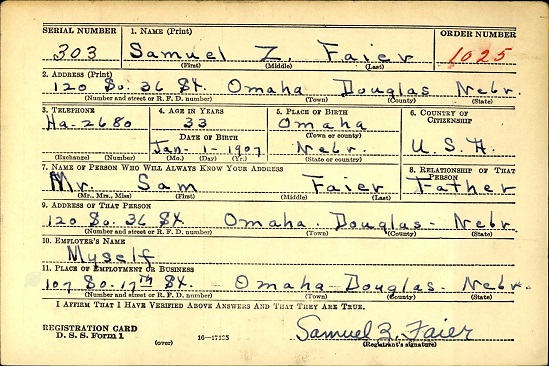 SERIAL NUMBER 1. NAME (Print) ORDER NUMBER
303 Samuel Z. Faier 1025
(First) (Middle) (Last)
2. ADDRESS (Print)
120 So. 36 St. Omaha Douglas Nebr.
(Number and street or R. F. D. number) (Town) (County) (State)
3. TELEPHONE 4. AGE IN YEARS 5. PLACE OF BIRTH 6. COUNTRY OF CITIZENSHIP
Ha-2680 33 Omaha
(Town or county)
DATE OF BIRTH
Jan- 1-1907 Nebr. U.S.A.
(Exchange) (Number) (Mo.) (Day) (Yr.) (State or country)
7. NAME OF PERSON WHO WILL ALWAYS KNOW YOUR ADDRESS 8. RELATIONSHIP OF THAT PERSON
Mr. Sam Faier Father
(Mr., Mrs., Miss) (First) (Last)
9. ADDRESS OF THAT PERSON
120 So. 36 St. Omaha Douglas Nebr.
(Number and street or R. F. D. number) (Town) (County) (State)
10. EMPLOYER'S NAME
Myself
11. PLACE OF EMPLOYMENT OR BUSINESS
107 So. 17th St. Omaha Douglas Nebr.
(Number and street or R. F. D. number) (Town) (County) (State)
I AFFIRM THAT I HAVE VERIFIED ABOVE ANSWERS AND THAT THEY ARE TRUE.
REGISTRATION CARD
D. S. S. Form 1 (over) 16-17105 Samuel Z. Faier
(Registrant's signature)